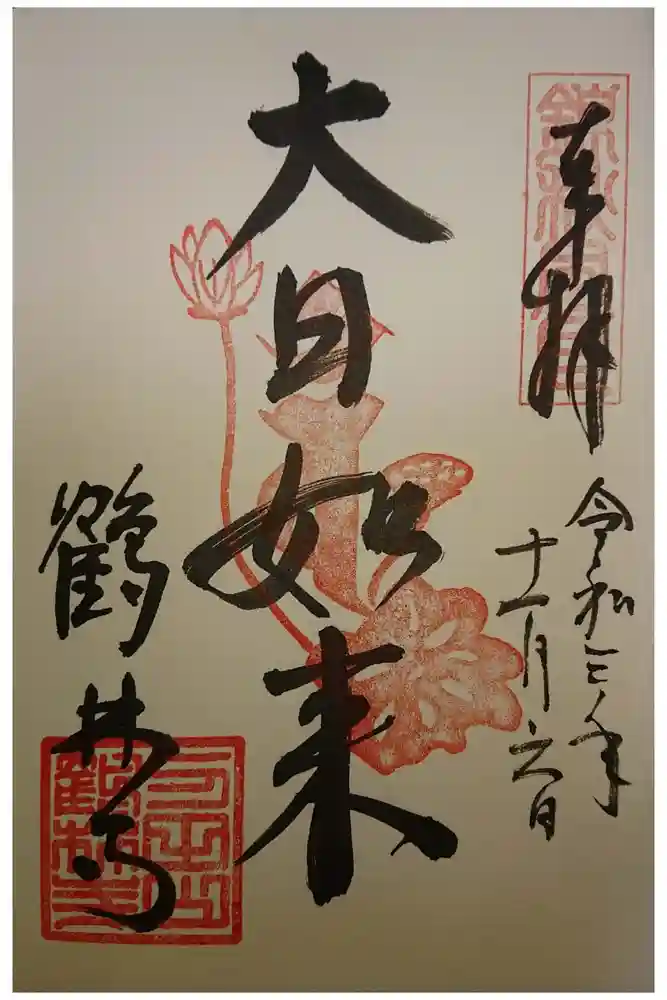 奉拝
令和三年
十一月六日
大日如来
鶴林寺
鶴林寺